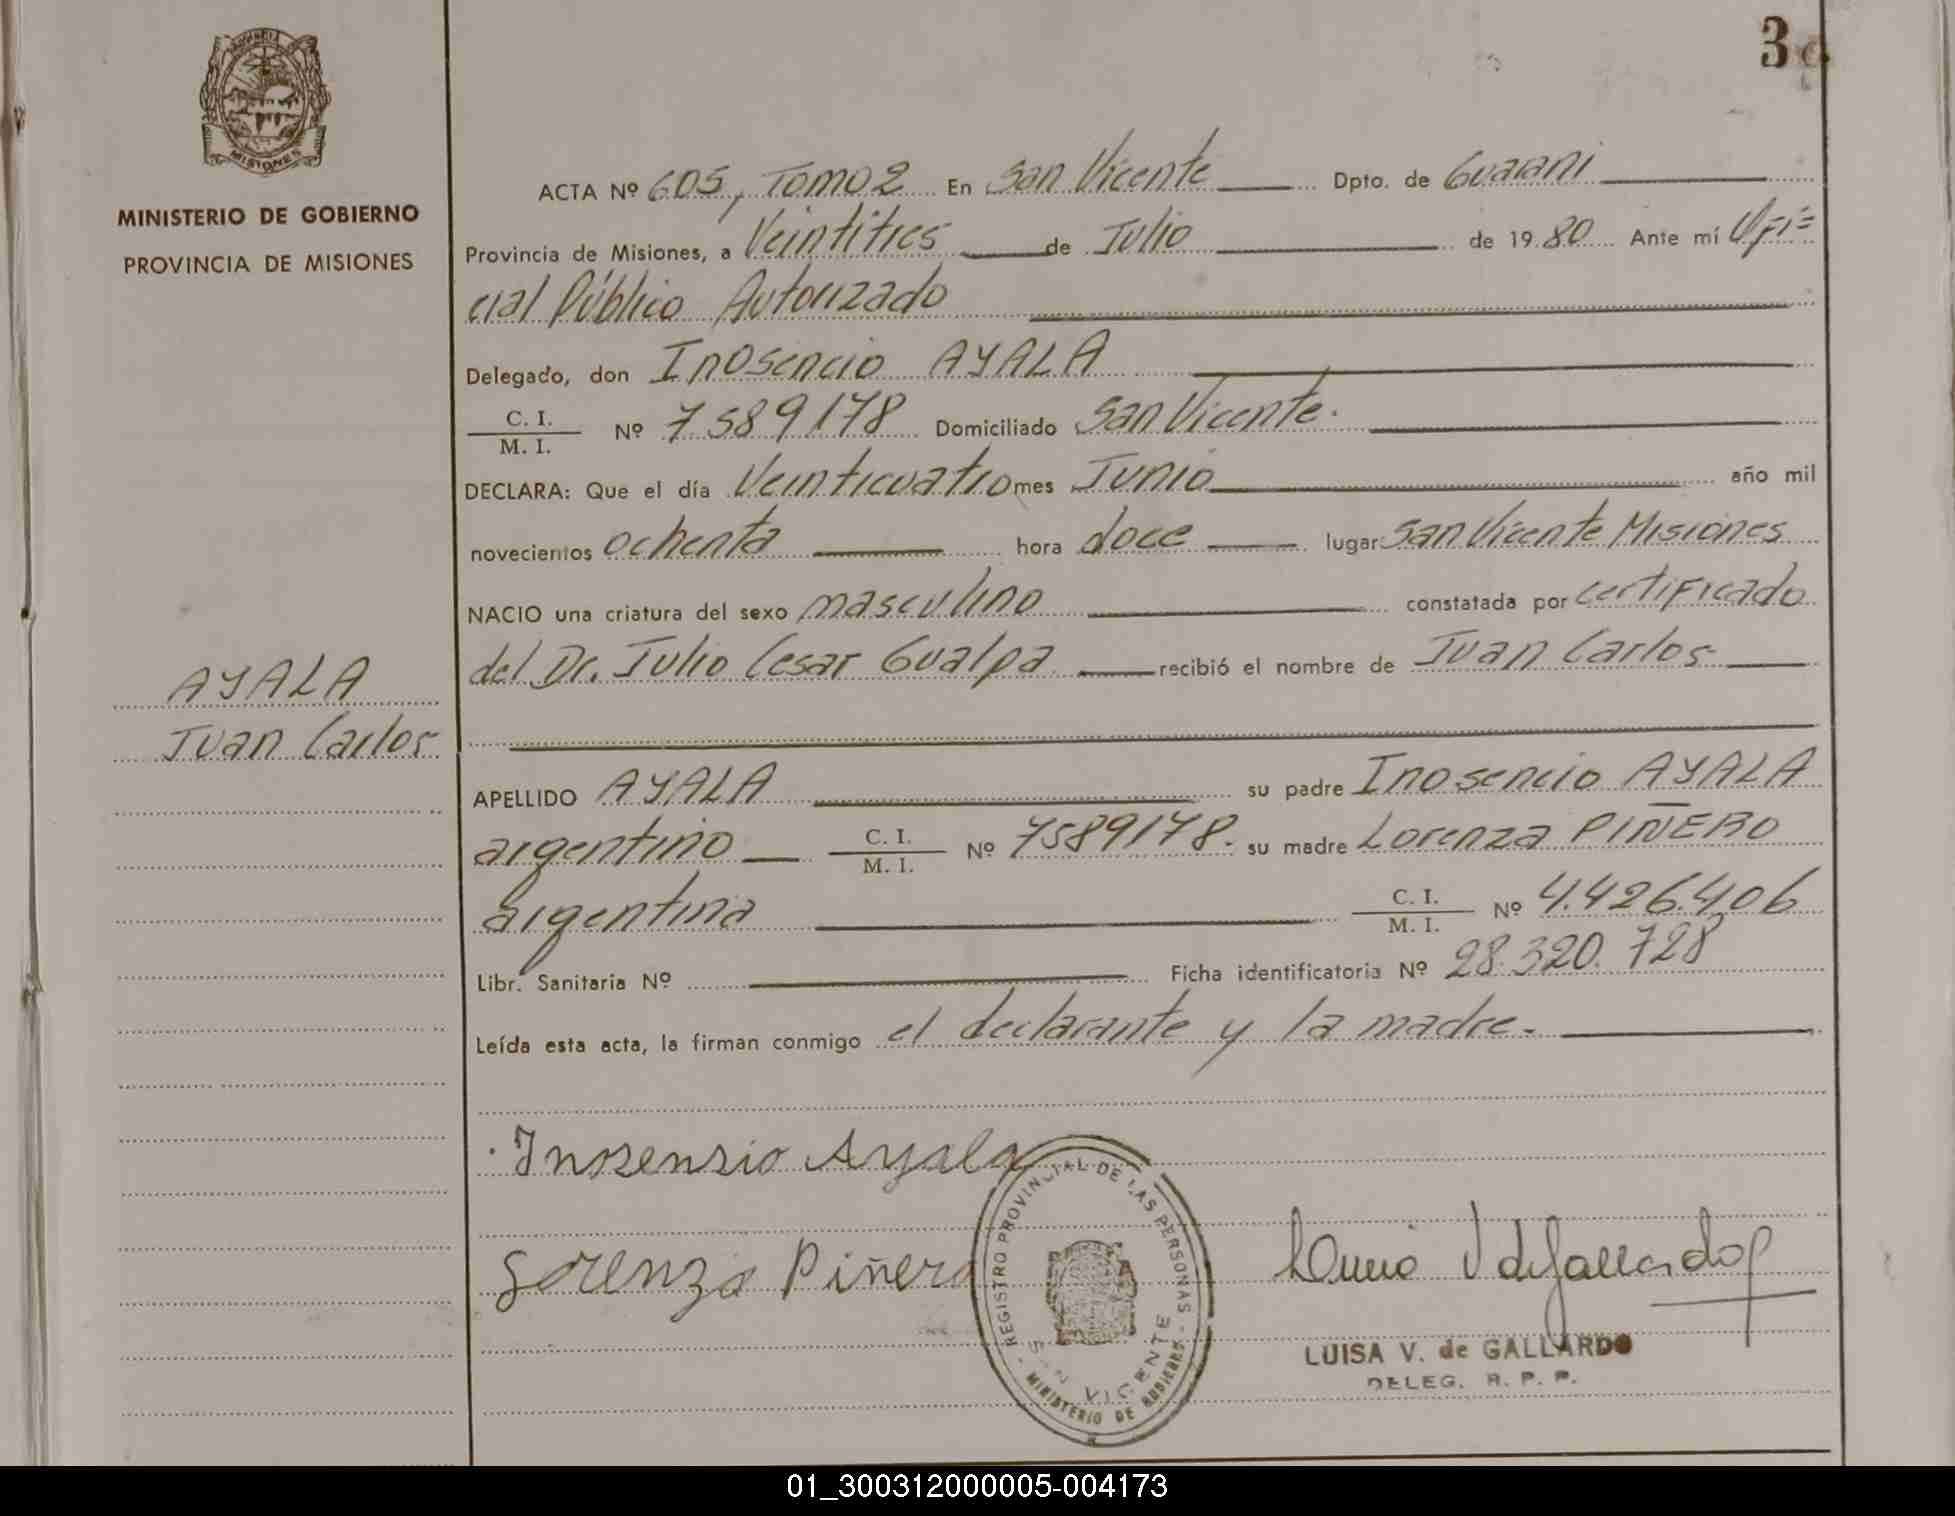 3
MISIONES
MINISTERIO DE GOBIERNO
PROVINCIA DE MISIONES
AYALA
Juan Carlos
ACTA Nº 605, Tomo 2 En San Vicente Dpto. de Guarani
Provincia de Misiones, a Veintitres de Julio de 19 80 Ante mí Ofi=
cial Público Autorizado
Delegado, don Inosencio AYALA
C. I.
M. I. Nº 7589178 Domiciliado San Vicente.
DECLARA: Que el día Veinticuatro mes Junio año mil
novecientos ochenta hora doce lugar San Vicente Misiones
NACIO una criatura del sexo masculino constatada por certificado
del Dr. Julio Cesar Gualpa recibió el nombre de Juan Carlos
APELLIDO AYALA su padre Inosencio AYALA
argentino C. I.
M. I. Nº 7589178. su madre Lorenza PIÑERO
argentina C. I.
M. I. Nº 4.426.406
Libr. Sanitaria Nº Ficha identificatoria Nº 28.320.728
Leída esta acta, la firman conmigo el declarante y la madre.
Inosensio Ayala
Lorenza Piñero
REGISTRO PROVINCIAL DE LAS PERSONAS
SAN VICENTE
MINISTERIO DE GOBIERNO
LUISA V. de GALLARDO
DELEG. R. P. P.
01_300312000005-004173